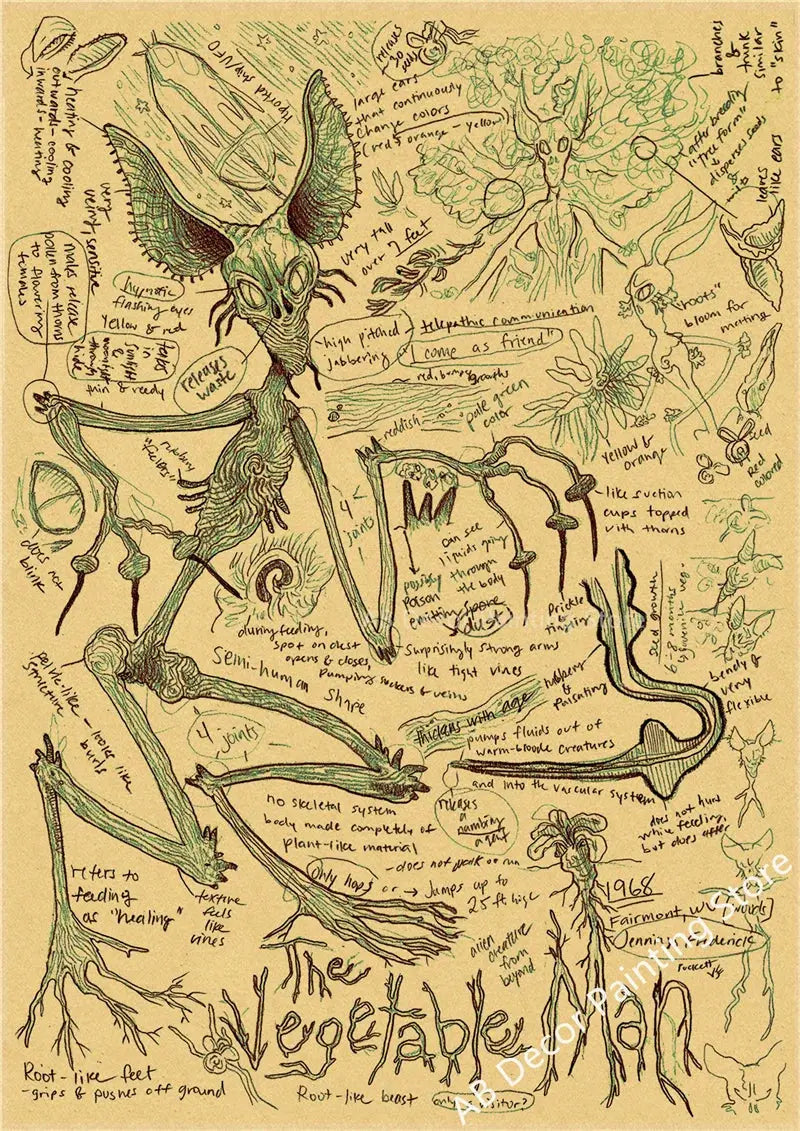 heating & cooling
outwards - cooling
inwards - heating
very
veiny,
sensitive
Reported ship/UFO
releases
50
seeds
large ears
that continuously
change colors
(red & orange - yellow)
branches
&
trunk
similar
to "skin"
after breeding
"tree form"
disperses seeds
leaves
like ears
very tall
over 7 feet
males release
pollen from thorns
to flowering
females
hypnotic
flashing eyes
yellow & red
in
sunlight
&
through
thin & reedy
releases
waste
high pitched
jabbering
telepathic communication
"I come as friend"
"roots"
bloom for
mating
red,
growths
reddish
pale green
color
yellow &
orange
seed
red
colored
4
joints
like suction
cups topped
with thorns
does not
blink
possibly
poison
emitting
can see
liquids going
through
the body
spore
dusk
prickle
finger
during feeding,
spot on chest
opens & closes,
pumping suckers & veins
surprisingly strong arms
like tight vines
semi-human
shape
seed growth
6-8 months
juvenile veg.
bendy &
very
flexible
pelvic-like
structure - looks like
burls
4 joints
thickens with age
rubbery
&
pulsating
pumps fluids out of
warm-bloode creatures
and into the vascular system
releases
a
numbing
agent
does not hurt
while feeding,
but does after
no skeletal system
body made completely of
plant-like material
- does not walk or run
only hops or → Jumps up to
25 ft high
refers to
feeding
as "healing"
texture
feels
like
vines
1968
Fairmont, WV
Jennings Frederick
alien
creature
from
beyond
The
Vegetable Man
Root-like feet
- grips & pushes off ground
Root-like beast
only visitor?
AB Decor Painting Store